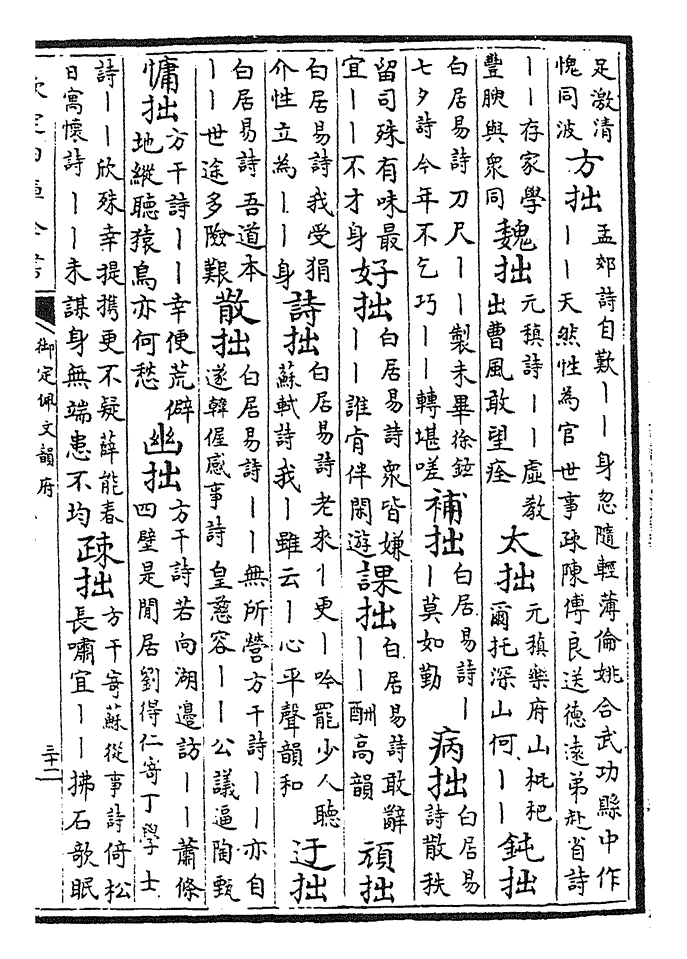 足激清愧同波方拙孟郊詩自歎丨丨身忽隨輕薄倫姚合武功縣中作丨丨天然性為官世事疎陳傅良送德遠弟赴省詩
丨丨存家學豐腴與衆同魏拙元稹詩丨丨虛教出曹風敢望痊太拙元稹樂府山枇杷爾托深山何丨丨鈍拙
白居易詩刀尺丨丨製未畢徐鉉七夕詩今年不乞巧丨丨轉堪嗟補拙白居易詩丨丨莫如勤病拙白居易詩散秩
留司殊有味最宜丨丨不才身好拙白居易詩衆皆嫌丨丨誰肯伴閑遊課拙白居易詩敢辭丨丨酬高韻頑拙
白居易詩我受狷介性立為丨丨身詩拙白居易詩老來丨更丨吟罷少人聽蘇軾詩我丨雖云丨心平聲韻和迂拙
白居易詩吾道本丨丨世途多險艱散拙白居易詩丨丨無所營方干詩丨丨亦自遂韓偓感事詩皇慈容丨丨公議逼陶甄
慵拙方干詩丨丨幸便荒僻地縱聽猿鳥亦何愁幽拙方干詩若向湖邊訪丨丨蕭條四壁是閒居劉得仁寄丁學士
詩丨丨欣殊幸提攜更不疑薛能春日寓懷詩丨丨未謀身無端患不均疎拙方干寄蘇從事詩倚松長嘯宜丨丨拂石歌眠
欽定四庫全書
御定佩文韻府
三十二